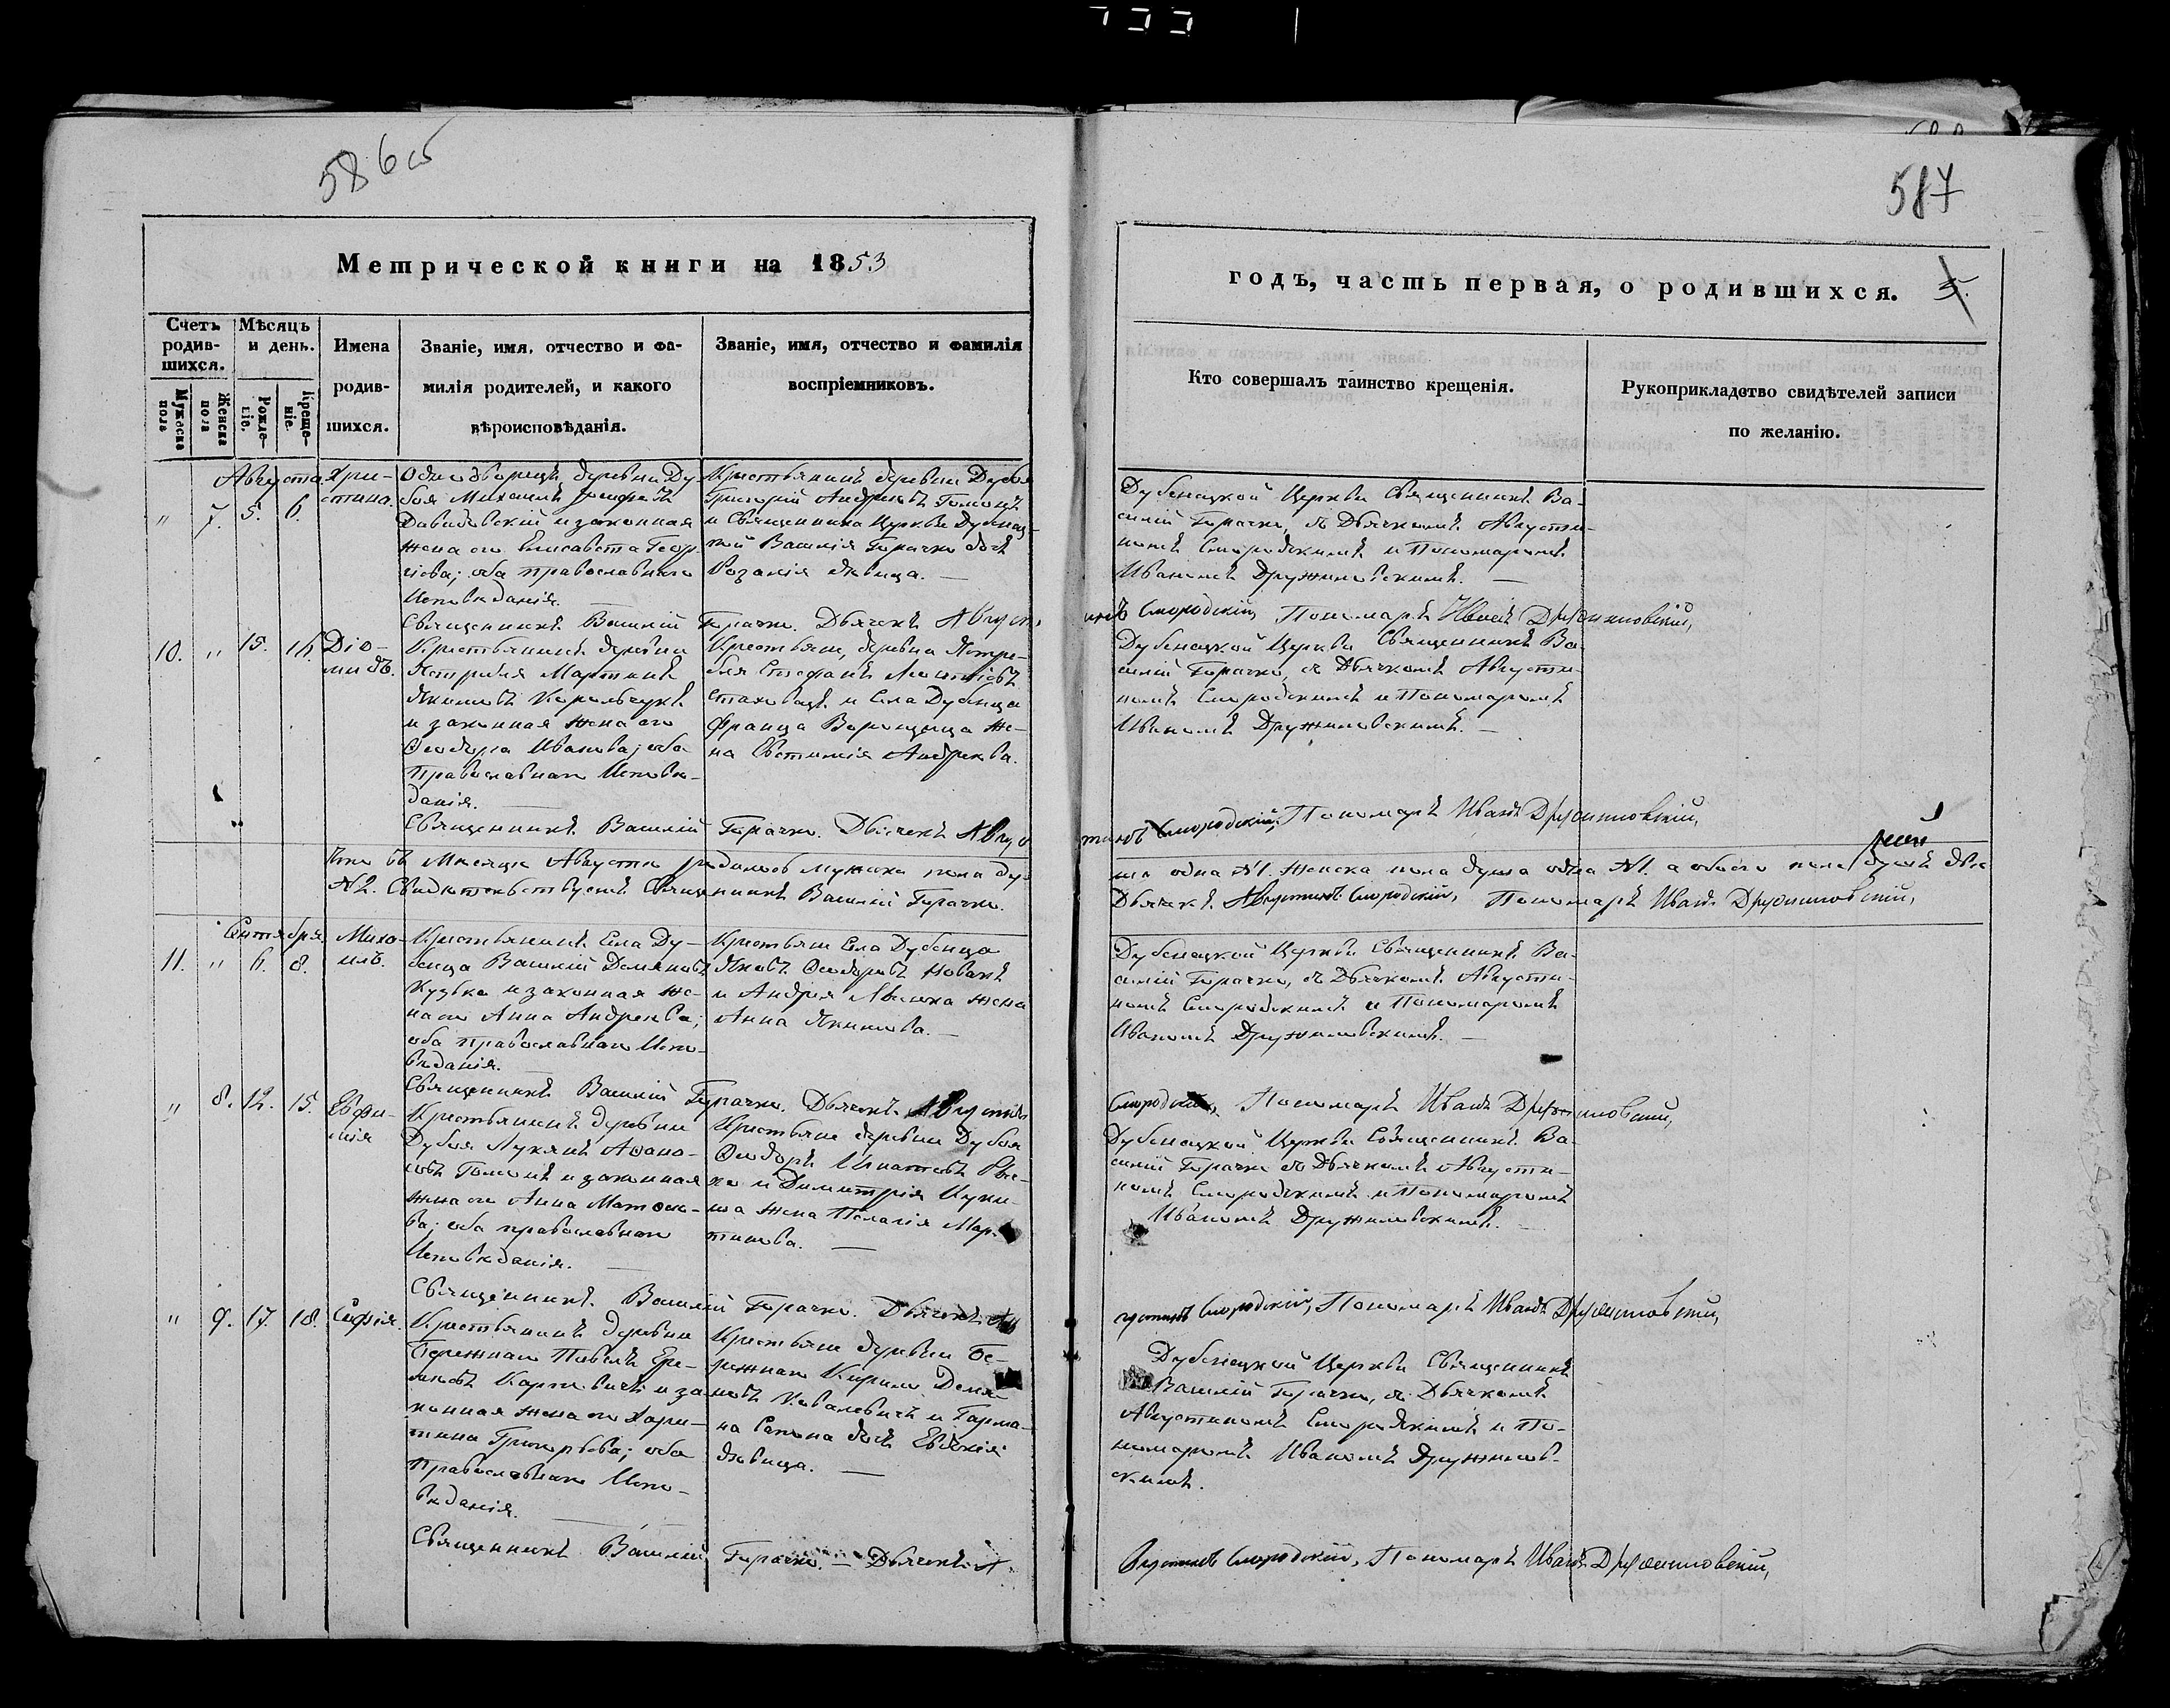 586 об
587
Метрической книги на 1853
годъ, часть первая, о родившихся. 5.
Счетъ родив-шихся.
Мѣсяцъ и день.
Имена родив-шихся.
Званіе, имя, отчество и фа-
милія родителей, и какого
вѣроисповѣданія.
Званіе, имя, отчество и фамилія
воспріемниковъ.
Кто совершалъ таинство крещенія.
Рукоприкладство свидѣтелей записи
по желанію.
Мужеска пола
Женска пола
Рожде-ніе.
Креще-ніе.
Августа
" 7. 5. 6.
Хри-
стина.
Однодворецъ деревни Ду-
боя Михаилъ
Давидовскій и законная
жена его Елисавета Геор-
гіева; оба православнаго
Исповѣданія.
Крестьянинъ деревни Дубоя
Григорій Андреевъ
и Священника Церкви Дубенец-
кой Василія Горачко дочь
Розалія дѣвица. —
Дубенецкой Церкви Священникъ Ва-
силій Горачко, съ Дьячкомъ Августи-
номъ Смородскимъ и Пономаремъ
Иваномъ Дружиловскимъ. —
Священникъ Василій Горачко. Дьячекъ Августи-
нъ Смородскій, Пономарь Иванъ Дружиловскій,
10. " 15. 16.
Діо-
мидъ.
Крестьянинъ деревни
Ястребля Мартинъ
Якимовъ Корольчукъ
и законная жена его
Ѳеодора Иванова; оба
православнаго Исповѣ-
данія. —
Крестьяне, деревни Ястре-
бля Стефанъ
и села Дубенца
Франца жe-
на Евтимія Андреева.
Дубенецкой Церкви Священникъ Ва-
силій Горачко, съ Дьячкомъ Августи-
номъ Смородскимъ и Пономаремъ
Иваномъ Дружиловскимъ. —
Священникъ Василій Горачко. Дьячекъ Авгус
тинъ Смородскій, Пономарь Иванъ Дружиловскій,
Итого въ Мѣсяцѣ Августѣ родилось мужеска пола ду-
ша одна №1. женска пола душа одна №1. а обоего пола душъ двѣ
№2. Свидѣтельствуемъ Священникъ Василій Горачко.
Дьячекъ Августинъ Смородскій, Пономарь Иванъ Дружиловскій,
Сентября
11. " 6. 8.
Миха-
илъ.
Крестьянинъ Села Ду-
бенца Василій Демяновъ
Кузька и законная же-
на его Анна Андреева;
оба православнаго Испо-
вѣданія. —
Крестьяне Села Дубенца
Яковъ Ѳеодоровъ Новакъ
и Андрея жена
Анна Якимова. —
Дубенецкой Церкви Священникъ Ва-
силій Горачко, съ Дьячкомъ Августи-
номъ Смородскимъ и Пономаремъ
Иваномъ Дружиловскимъ. —
Священникъ Василій Горачко. Дьячекъ Августинъ
Смородскій, Пономарь Иванъ Дружиловскій,
" 8. 12. 15.
Евфи-
мія
Крестьянинъ деревни
Дубоя Лукянъ Аѳана-
совъ и законная
жена его Анна Матѳее-
ва; оба православнаго
Исповѣданія. —
Крестьяне деревни Дубоя
Ѳеодоръ Игнатовъ
и Димитрія
жена Пелагія Мар-
тинова. —
Дубенецкой Церкви Священникъ Ва-
силій Горачко съ Дьячкомъ Августи-
номъ Смородскимъ и Пономаремъ
Иваномъ Дружиловскимъ. —
Священникъ Василій Горачко. Дьячекъ Ав
густинъ Смородскій, Пономарь Иванъ Дружиловскій,
" 9. 17. 18.
Софія.
Крестьянинъ деревни
Бережнаго Павелъ Ере-
миевъ Карповичъ и за-
конная жена его Хари-
тина Григорьева; оба
православнаго Испо-
вѣданія.
Крестьяне деревни Бе-
режнаго Кирило Демя-
новъ Ковалевичъ и Гарма-
на дочь Евдокія
дѣвица. —
Дубенецкой Церкви Священникъ
Василій Горачко, съ Дьячкомъ
Августиномъ Смородскимъ и По-
номаремъ Иваномъ Дружилов-
скимъ.
Священникъ Василій Горачко. — Дьячекъ А
вгустинъ Смородскій, Пономарь Иванъ Дружиловскій,